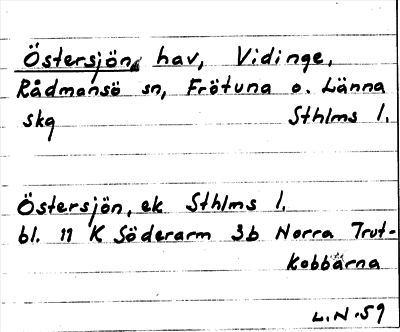 Östersjön, hav, Vidinge,
Rådmansö sn, Frötuna o. Länna
skg Sthlms l.
Östersjön, ek Sthlms l.
bl. 11 K Söderarm 3b Norra Trut-
kobbarna
L.N. 59